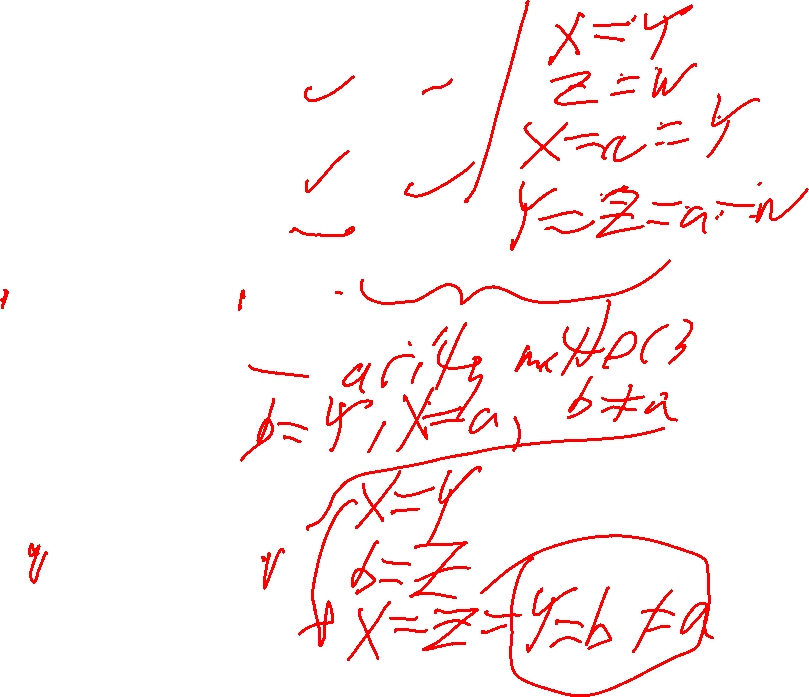 X=Y
Z=W
X=a=Y
Y=Z=a=W
arity
b=Y, X=a, b≠a
X=Y
b=Z
X=Z=Y=b≠a